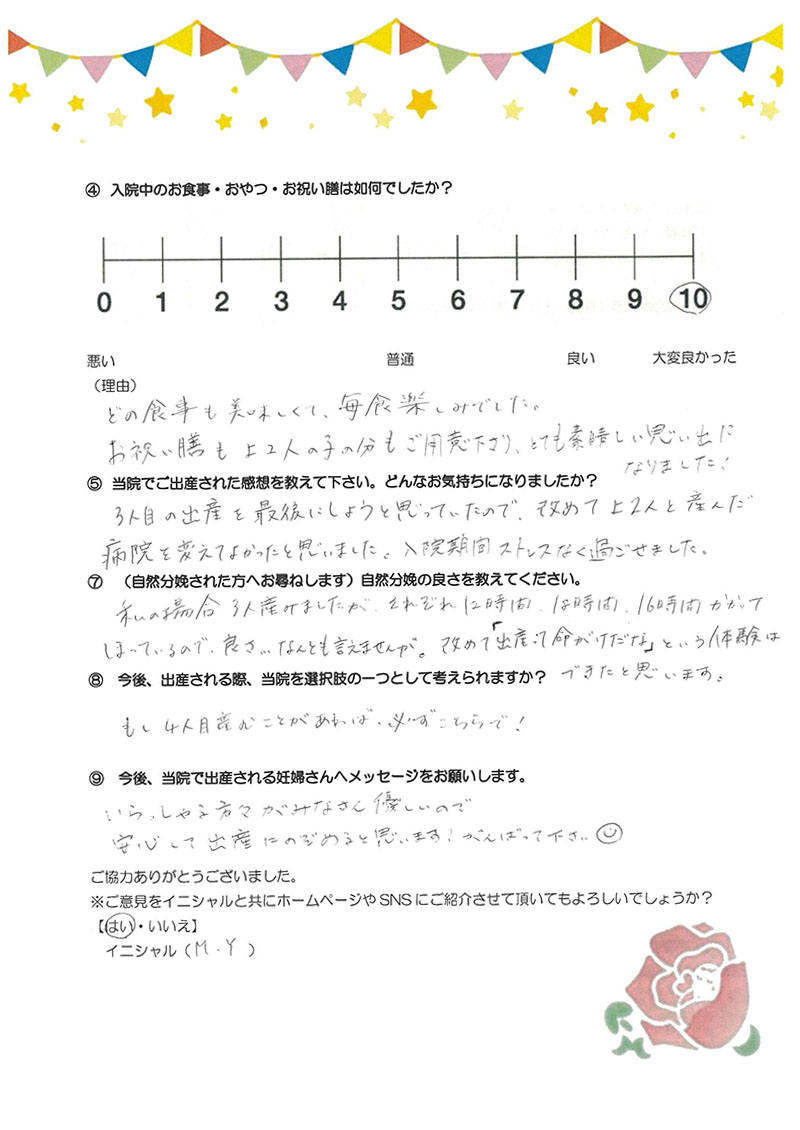 ④ 入院中のお食事・おやつ・お祝い膳は如何でしたか？
0 1 2 3 4 5 6 7 8 9 10
悪い 普通 良い 大変良かった
（理由）
どの食事も美味しくて、毎食楽しみでした。
お祝い膳も上2人の子の分もご用意下さり、とても素晴しい思い出に
なりました！
⑤ 当院でご出産された感想を教えて下さい。どんなお気持ちになりましたか？
3人目の出産を最後にしようと思っていたので、改めて上2人と産んだ
病院を変えてなかったと思いました。入院期間ストレスなく過ごせました。
⑦ （自然分娩された方へお尋ねします）自然分娩の良さを教えてください。
私の場合3人産みましたが、それぞれ12時間、18時間、16時間かかって
しまっているので、良さ…なんとも言えませんが。改めて「出産って命がけだな」という体験は
できたと思います。
⑧ 今後、出産される際、当院を選択肢の一つとして考えられますか？
もし4人目産むことがあれば、必ずこちらで！
⑨ 今後、当院で出産される妊婦さんへメッセージをお願いします。
いらっしゃる方々がみなさん優しいので
安心して出産にのぞめると思います！がんばって下さい
ご協力ありがとうございました。
※ご意見をイニシャルと共にホームページやSNSにご紹介させて頂いてもよろしいでしょうか？
【はい・いいえ】
イニシャル（M.Y）